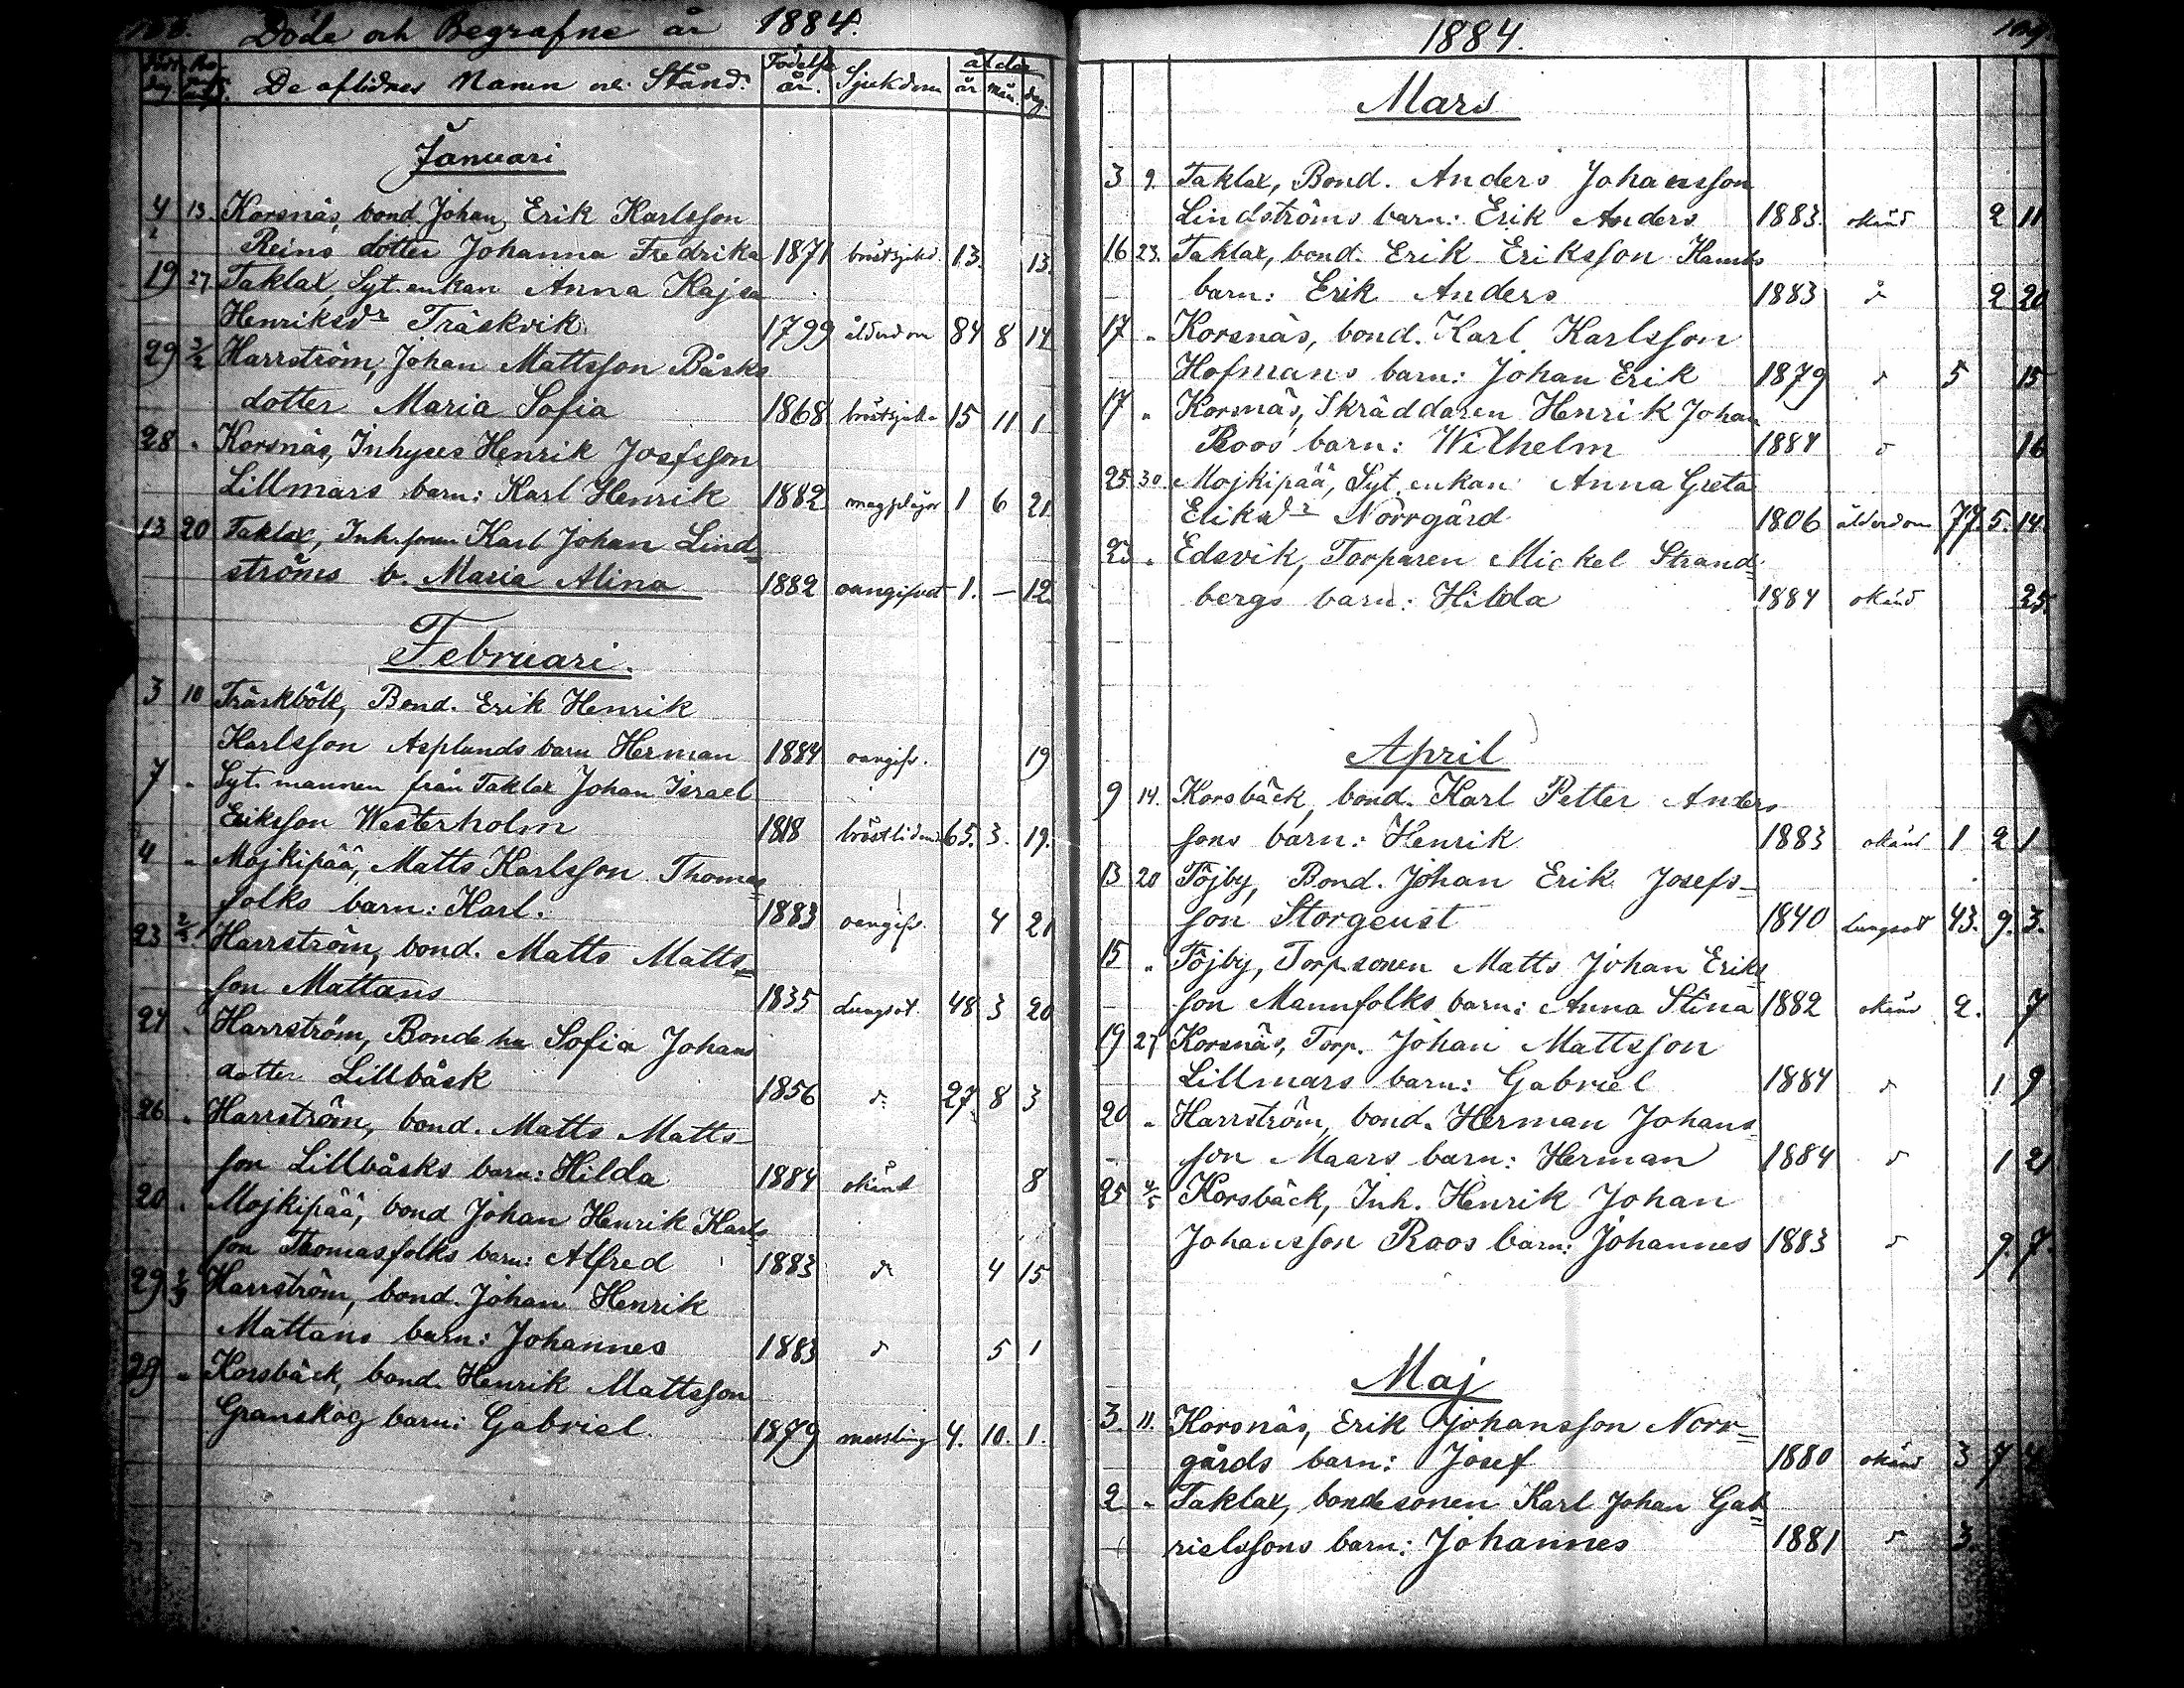 Döde och Begrafne år 1884.
De aflidnes Namn och Stånd. Födelse år. Sjukdom ålder år mån. dag.
Januari
4 13 Korsnäs, bond. Johan Erik Karlsson
Reins dotter Johanna Fredrika 1871 bröstsjukd. 13. 13.
19 27 Taklax, Syt. enkan Anna Kajsa
Henriksdr Träskvik 1799 ålderdom 84 8 14
29 3/2 Harrström, Johan Mattsson Båsks
dotter Maria Sofia 1868 15 11 1
28 " Korsnäs, Inhyses Henrik Josefsson
Lillmars barn: Karl Henrik 1882 1 6 21
13 20 Taklax, Inh. sonen Karl Johan Lind=
ströms b. Maria Alina 1882 oangifvet 1. — 12.
Februari.
3 10 Träskböle, Bond. Erik Henrik
Karlsson Asplunds barn Herman 1884 oangif. 19
7 " Syt. mannen från Taklax Johan Israel
Eriksson Westerholm 1818 bröstlidande 65. 3. 19.
4 " Mojkipää, Matts Karlsson Thomas=
folks barn: Karl. 1883 oangif. 4 21
23 2/3 Harrström, bond. Matts Matts=
son Mattans 1835 Lungsot. 48 3 20
24 " Harrström, Bonde hu Sofia Johans
dotter Lillbåsk 1856 d:o 27. 8 3
26 " Harrström, bond. Matts Matts-
son Lillbåsks barn: Hilda 1884 okänd 8
20 " Mojkipää, bond Johan Henrik Karls
son Thomasfolks barn: Alfred 1883 d:o 4 15
29 2/3 Harrström, bond. Johan Henrik
Mattans barn: Johannes 1883 d:o 5 1
29 " Korsbäck, bond. Henrik Mattsson
Granskog barn: Gabriel. 1879 messling 4. 10. 1.
1884. 109.
Mars
3 9. Taklax, Bond. Anders Johansson
Lindströms barn: Erik Anders 1883. okänd 2 11
16 23. Taklax, bond. Erik Eriksson
barn: Erik Anders 1883 d:o 2 20
17 " Korsnäs, bond. Karl Karlsson
Hofmans barn: Johan Erik 1879 d:o 5 15
17 " Korsnäs, Skräddaren Henrik Johan
Roos barn: Wilhelm 1884 d:o 16
25 30. Mojkipää, Syt. enkan Anna Greta
Eriksdr Norrgård 1806 ålderdom 77. 5. 14.
23 " Edsvik, Torparen Mickel Strand=
bergs barn: Hilda 1884 okänd 25
April
9 14. Korsbäck, bond. Karl Petter Anders
sons barn: Henrik 1883 okänd 1 2 1
13 20 Töjby, Bond. Johan Erik Josefs-
son Storgeust 1840 Lungsot 43. 9. 3.
15 " Töjby, Torp.sonen Matts Johan Eriks
son Mannfolks barn: Anna Stina 1882 okänd 2. 7
19 27 Korsnäs, Torp. Johan Mattsson
Lillmars barn: Gabriel 1884 d:o 1 9
20 " Harrström, bond. Herman Johans=
son Maars barn: Herman 1884 d:o 1 2
25 4/5 Korsbäck, Inh. Henrik Johan
Johansson Roos barn: Johannes 1883 d:o 9. 7.
Maj
3. 11. Korsnäs, Erik Johansson Norr=
gårds barn: Josef 1880 okänd 3 7 4
2 " Taklax, bondesonen Karl Johan Gab=
rielssons barn: Johannes 1881 d:o 3.